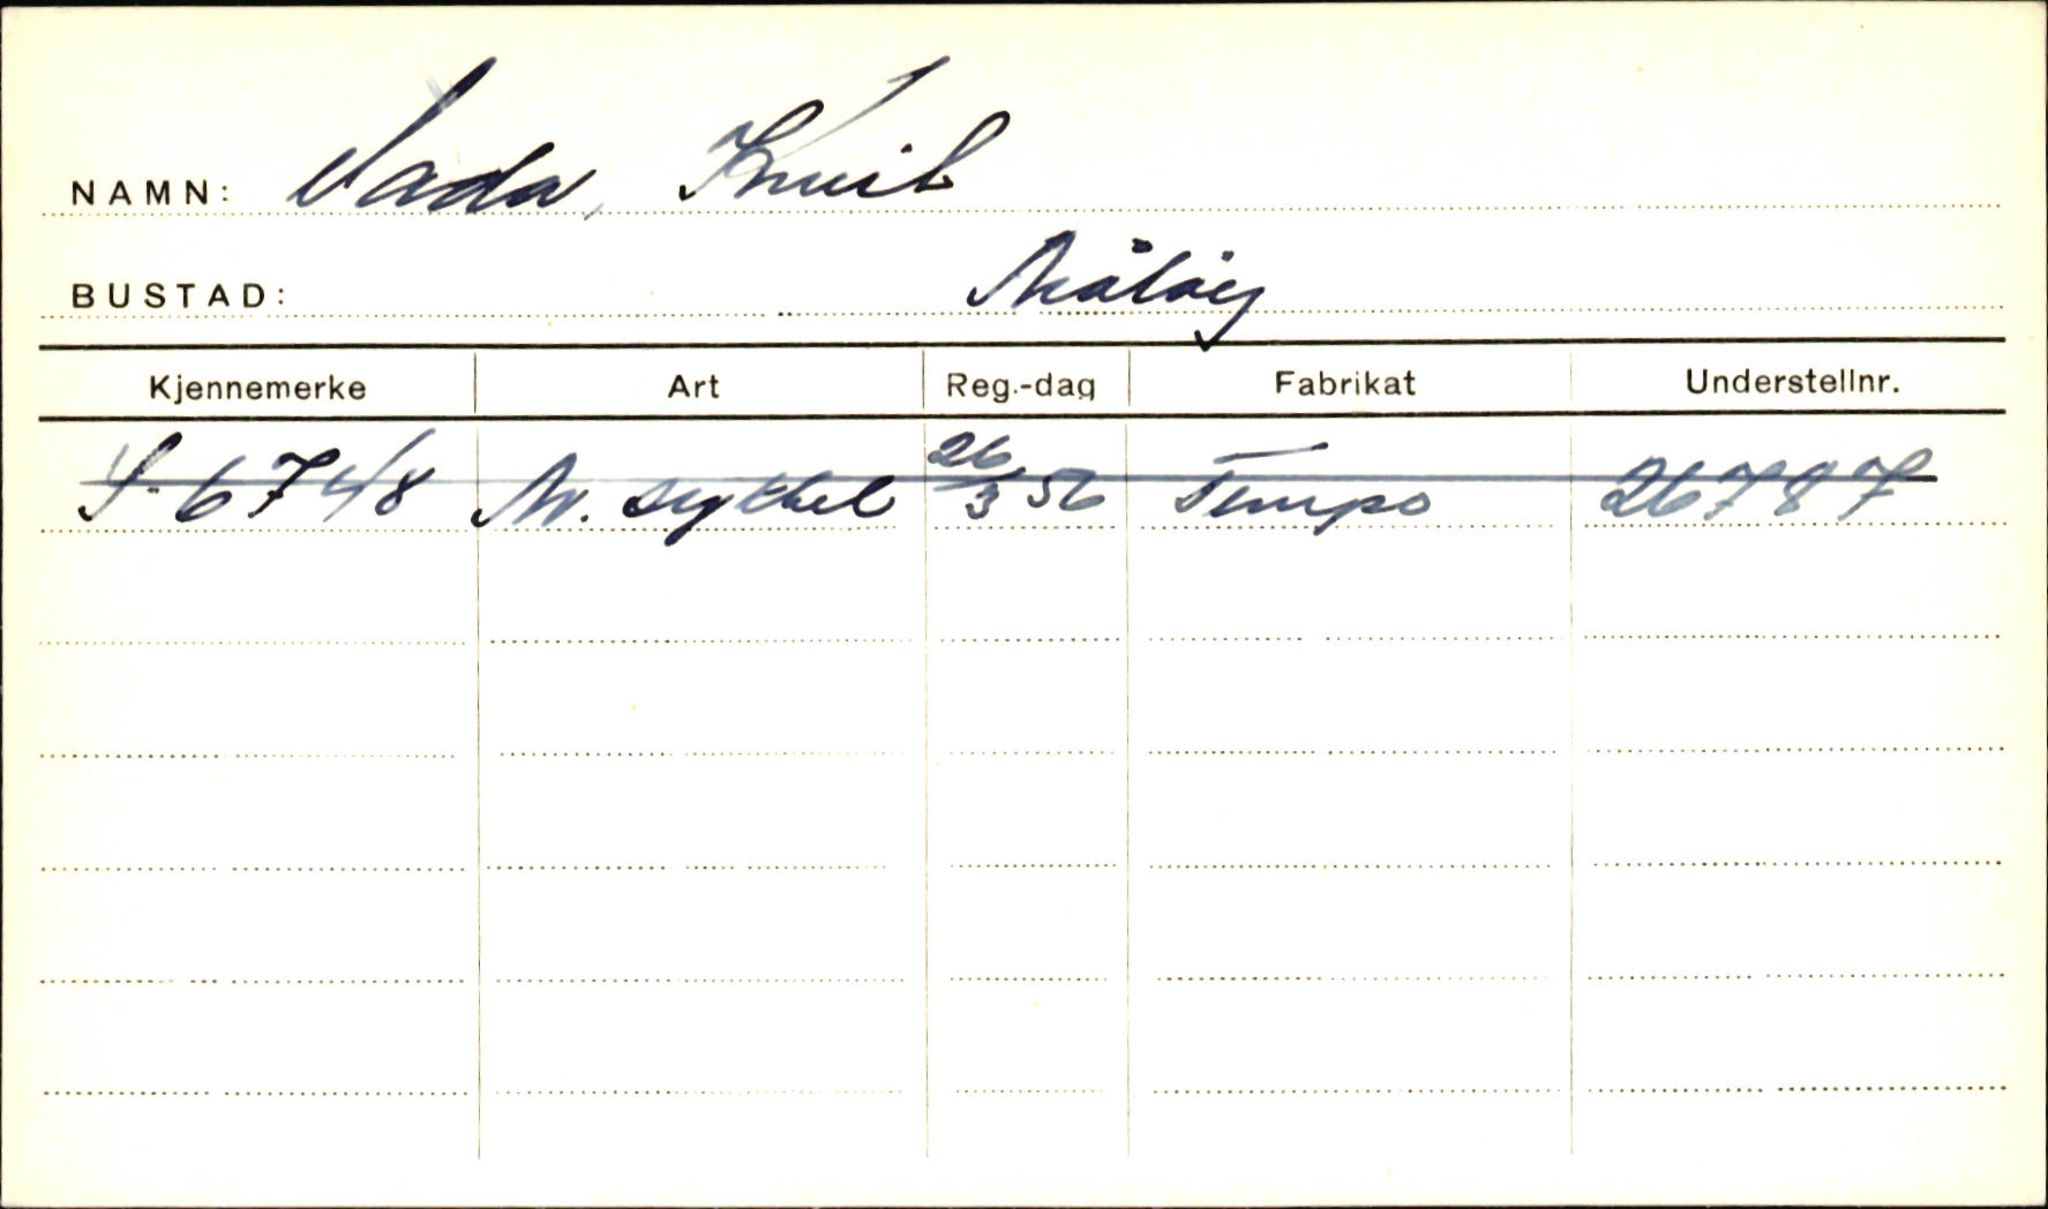 NAMN: Vada, Knut
BUSTAD: Måløy
Kjennemerke Art Reg.-dag Fabrikat Understellnr.
S-6748 M. sykkel 26/3 56 Tempo 26787